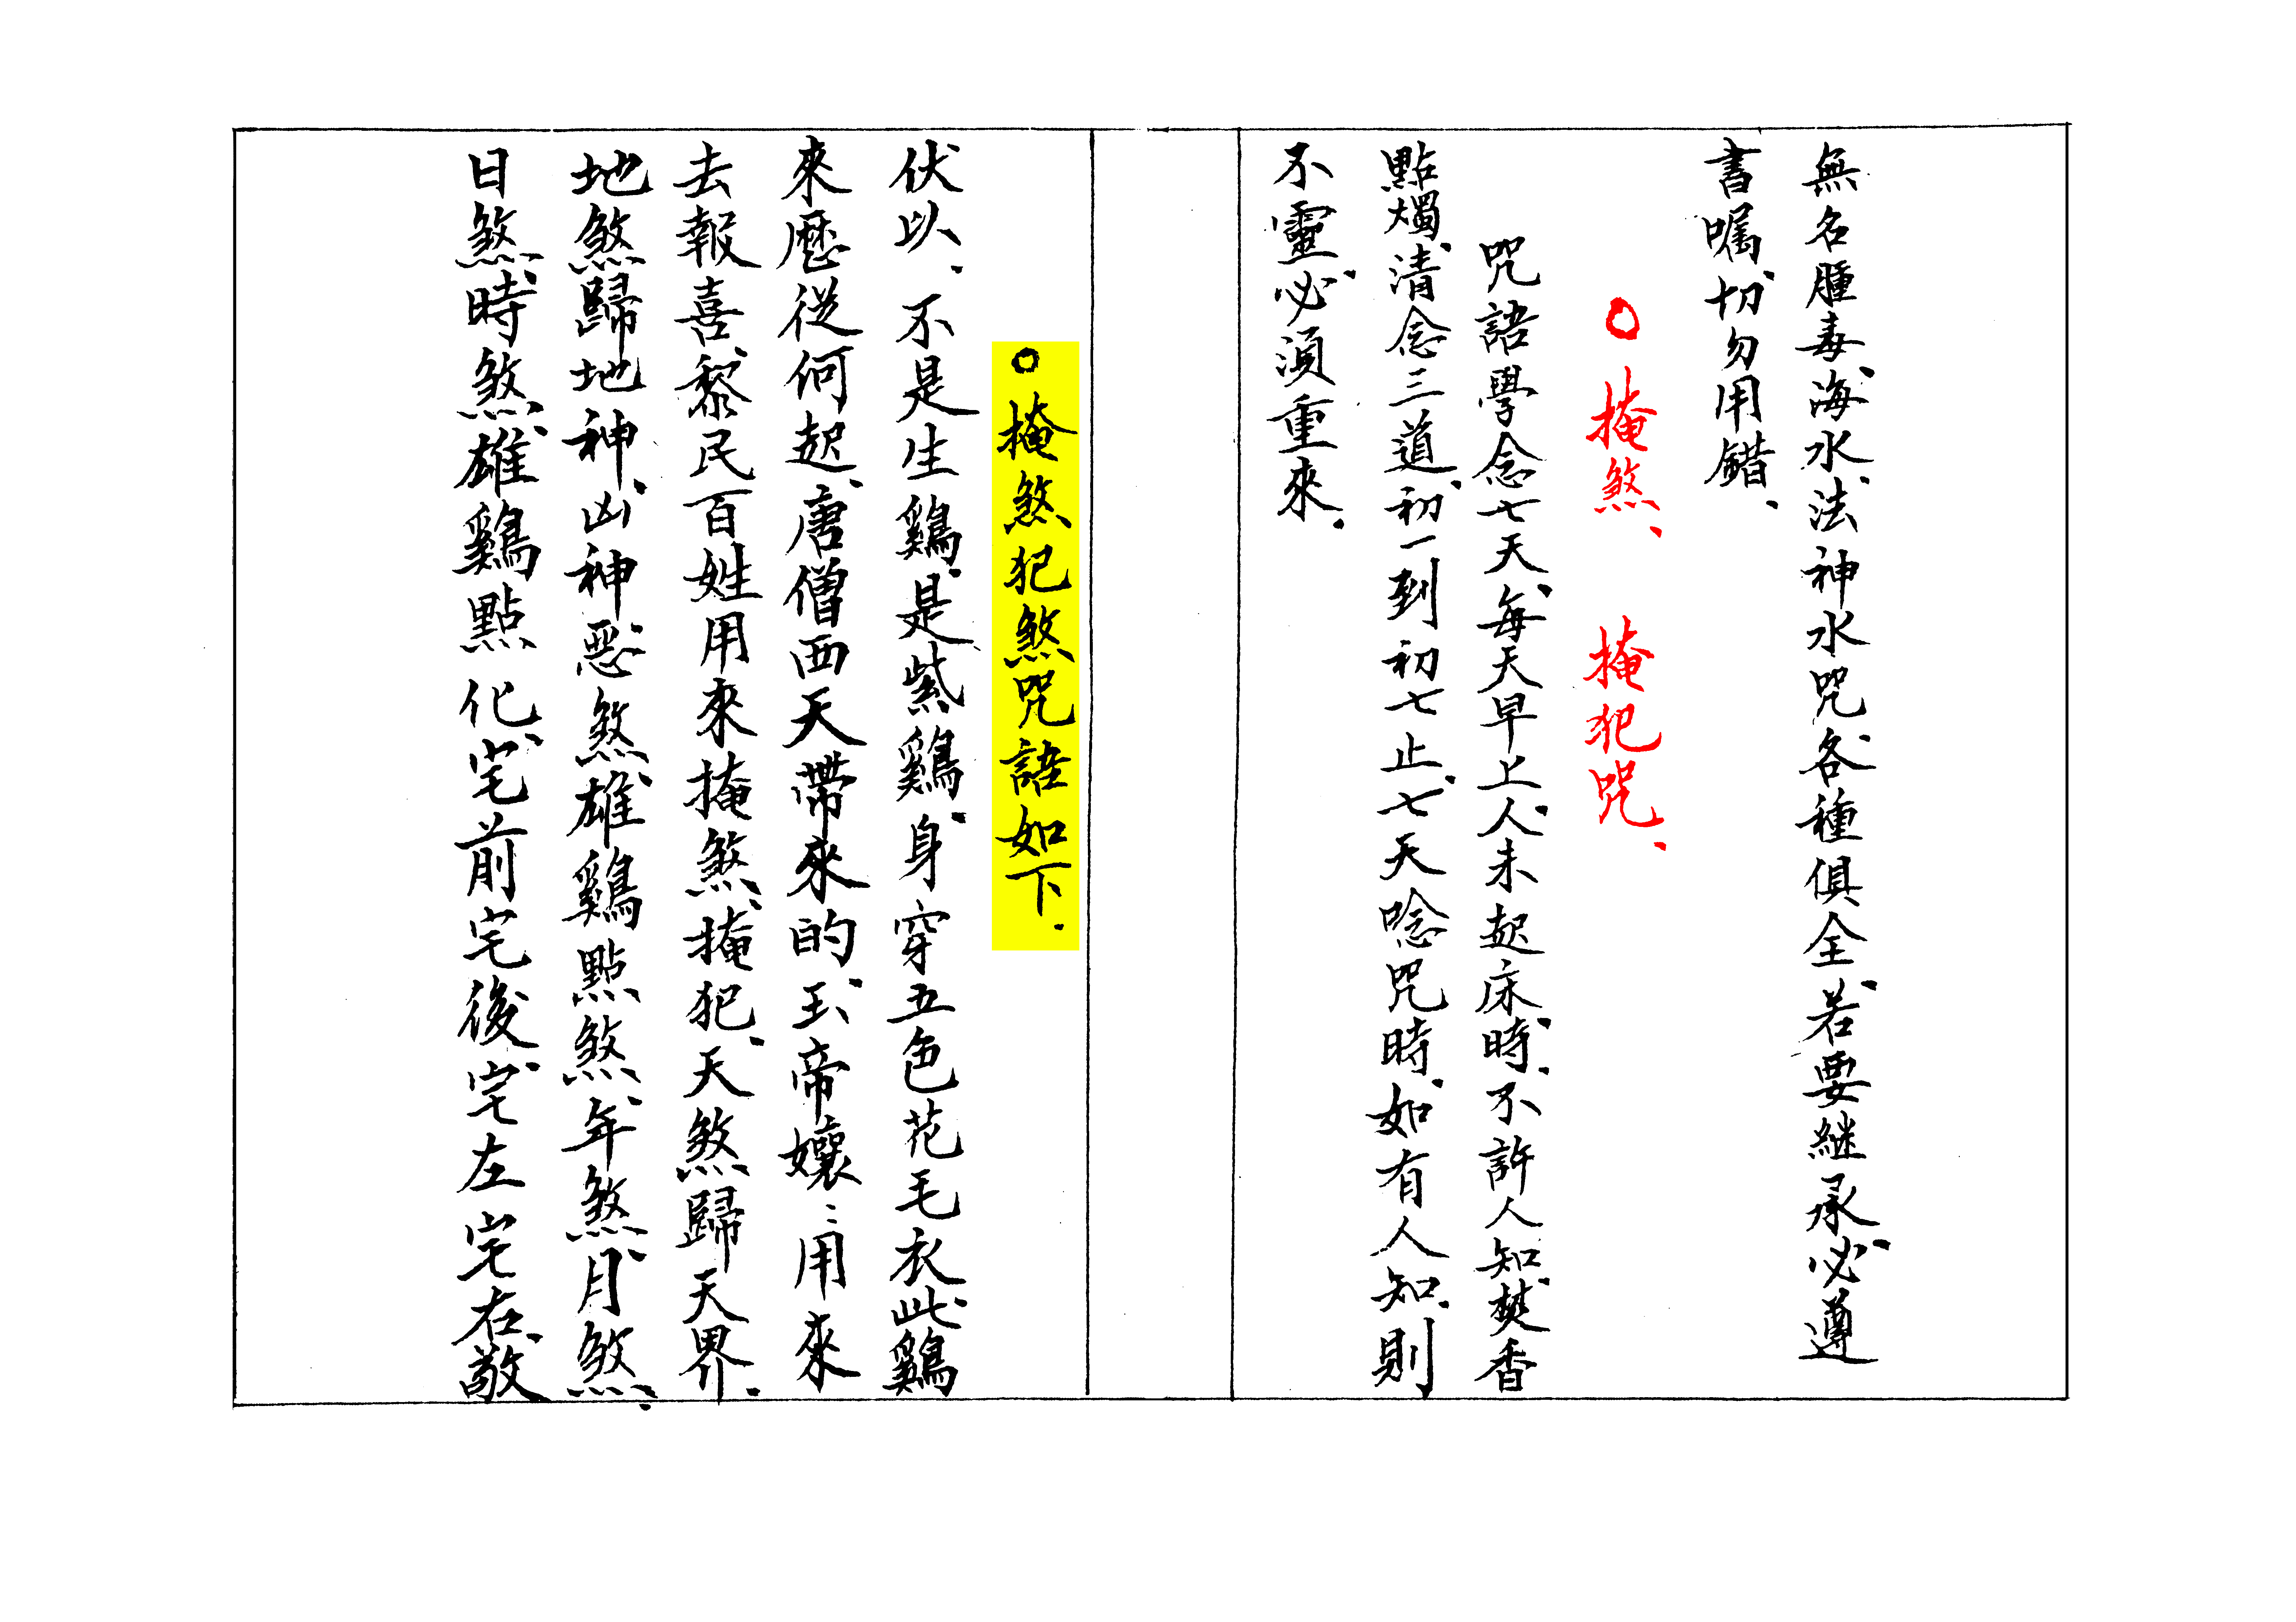 無名腫毒、海水、法神水咒各種俱全、若要継承、必遵
書嘱、切勿用錯、
○掩煞、掩犯咒、
咒語學念七天、每天早上、人未起床時、不許人知、焚香
點燭、清念三道、初一到初七止、七天唸咒時、如有人知、則
不靈、必須重來、
○掩煞犯煞咒語如下、
伏以、不是生鷄、是紫鷄、身穿五色花毛衣、此鷄
來歷從何起、唐僧西天帶來的、玉帝孃:用來
去報喜、黎民百姓用來掩煞、掩犯、天煞歸天界、
地煞歸地神、凶神惡煞、雄鷄點煞、年煞、月煞、
日煞、時煞、雄鷄點化、宅前宅後、宅左宅右、敬